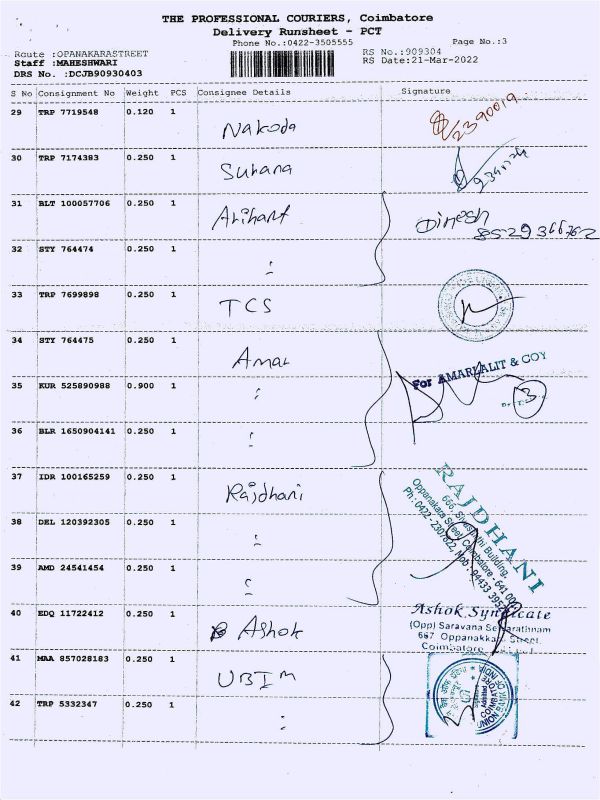 THE PROFESSIONAL COURIERS, Coimbatore
Delivery Runsheet - PCT
Phone No.:0422-3505555 Page No.:3
Route :OPANAKARASTREET RS No.:909304
Staff :MAHESHWARI RS Date:21-Mar-2022
DRS No. :DCJB90930403
S No Consignment No Weight PCS Consignee Details Signature
29 TRP 7719548 0.120 1 Nakoda 2390019
30 TRP 7174383 0.250 1 Suhana
31 BLT 100057706 0.250 1 Arihant Dinesh
32 STY 764474 0.250 1 :
33 TRP 7699898 0.250 1 TCS
34 STY 764475 0.250 1 Amar For AMARLALIT & COY
35 KUR 525890988 0.900 1 : 3
36 BLR 1650904141 0.250 1 :
37 IDR 100165259 0.250 1 Rajdhani RAJDHANI
Oppanakara Street, Coimbatore - 641 001
Ph : 0422 - 2307622,
38 DEL 120392305 0.250 1 :
39 AMD 24541454 0.250 1 :
40 EDQ 11722412 0.250 1 Ashok Ashok Syndicate
(Opp) Saravana
687 Oppanakkara Street,
Coimbatore
41 MAA 857028183 0.250 1 UBIM UNION BANK OF INDIA
COIMBATORE
42 TRP 5332347 0.250 1 :